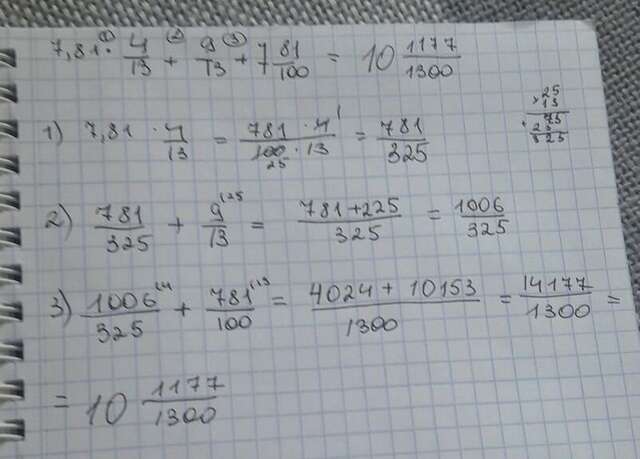 7,81 ·① 4/13 +② 9/13 +③ 7 81/100 = 10 1177/1300
1) 7,81 · 4/13 = 781 · 4¹/100 25 · 13 = 781/325
25
× 13
75
25
325
2) 781/325 + 9⁽²⁵/13 = 781+225/325 = 1006/325
3) 1006⁽⁴/325 + 781⁽¹³/100 = 4024 + 10153/1300 = 14177/1300 =
= 10 1177/1300